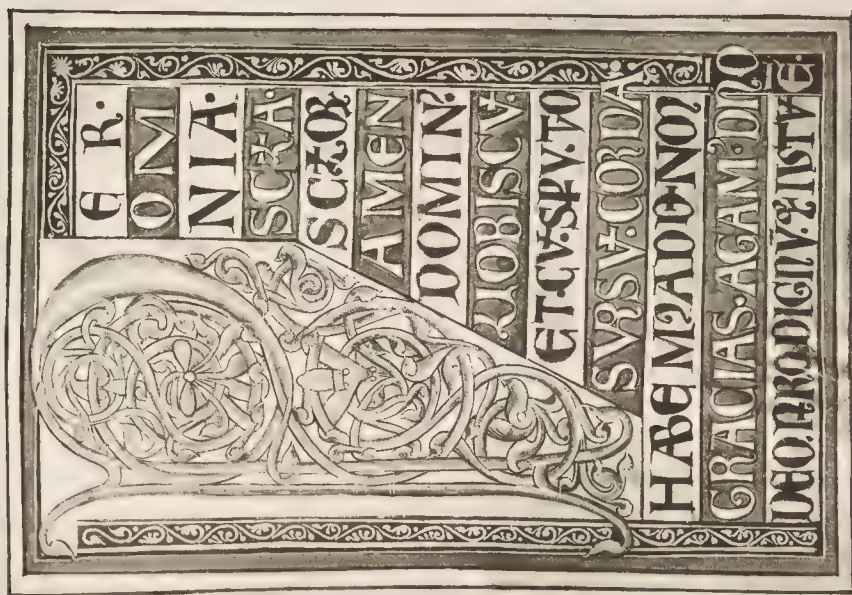 P
ER·
OM
NIA·
SCLA·
SCLOR
AMEN
DOMIN'
UOBISCV·
ET·CV·SPV·TO
SVRSV·CORDA
HABEM'ADDNOM
GRACIAS·AGAM·DNO
DEO·NRO·DIGNV·&·IVSTV·E·